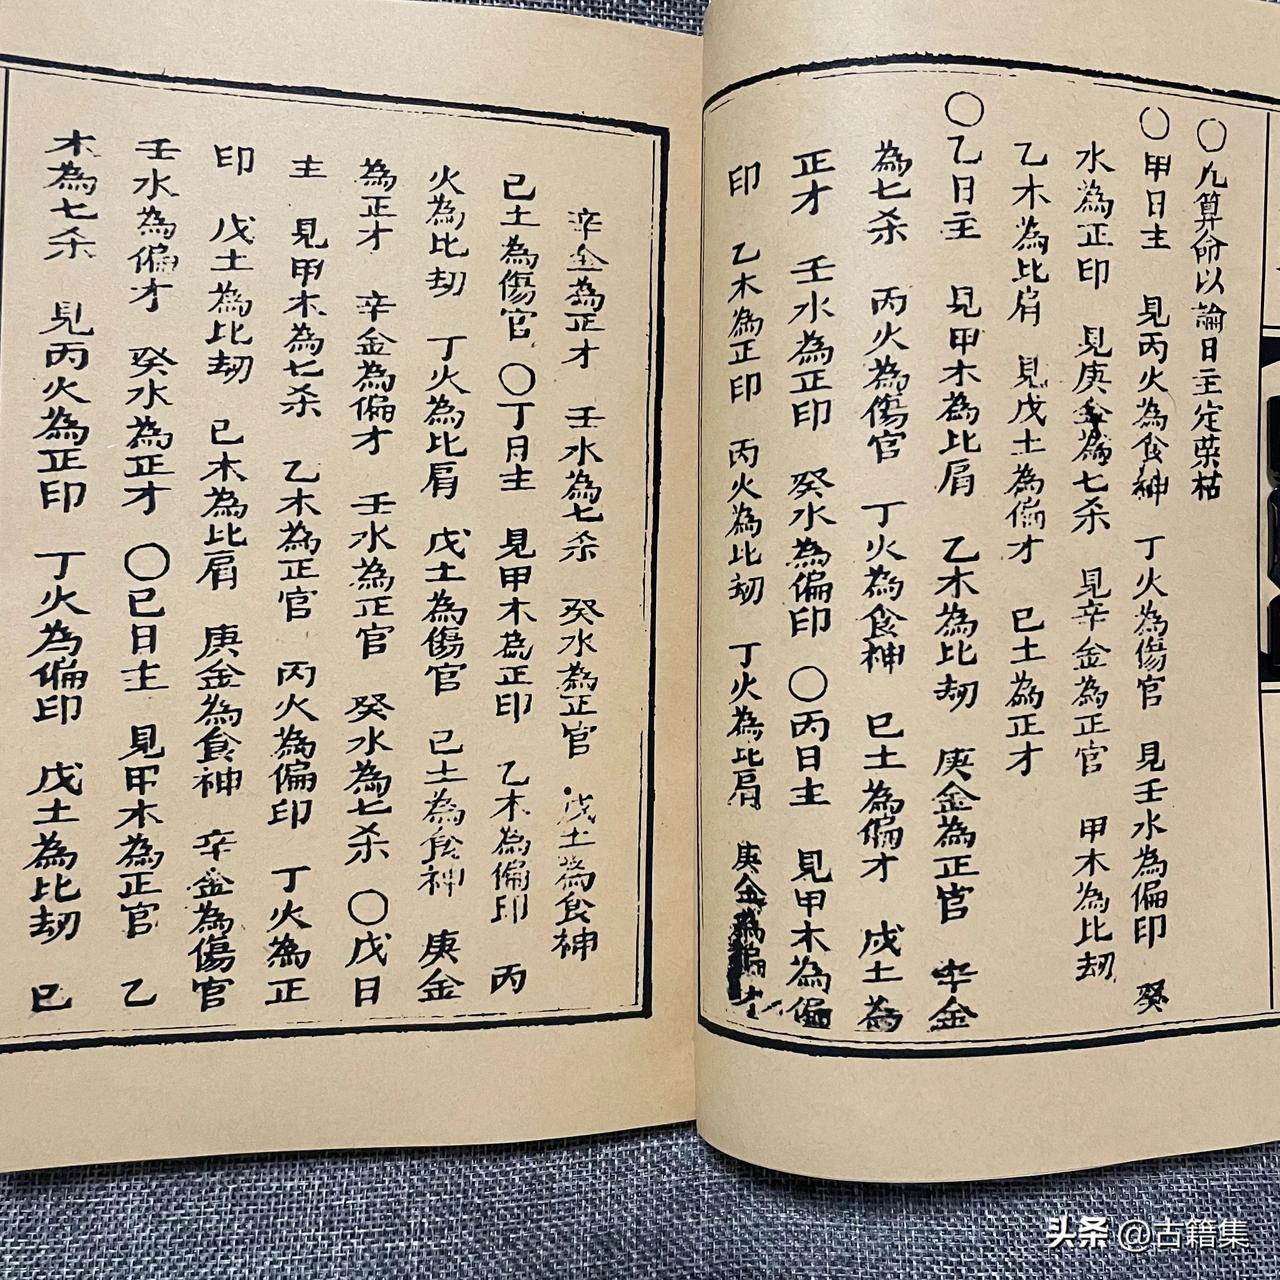 〇凡算命以論日主定荣枯
〇甲日主 見丙火為食神 丁火為傷官 見壬水為偏印 癸
水為正印 見庚金為七杀 見辛金為正官 甲木為比刼
乙木為比肩 見戊土為偏才 巳土為正才
〇乙日主 見甲木為比肩 乙木為比刼 庚金為正官 辛金
為七杀 丙火為傷官 丁火為食神 巳土為偏才 戍土為
正才 壬水為正印 癸水為偏印 〇丙日主 見甲木為偏
印 乙木為正印 丙火為比刼 丁火為比肩 庚金為偏才
辛金為正才 壬水為七杀 癸水為正官 戊土為食神
已土為傷官 〇丁日主 見甲木為正印 乙木為偏印 丙
火為比刼 丁火為比肩 戊土為傷官 已土為食神 庚金
為正才 辛金為偏才 壬水為正官 癸水為七杀 〇戊日
主 見甲木為七杀 乙木為正官 丙火為偏印 丁火為正
印 戊土為比刼 已木為比肩 庚金為食神 辛金為傷官
壬水為偏才 癸水為正才 〇已日主 見甲木為正官 乙
木為七杀 見丙火為正印 丁火為偏印 戊土為比刼 已
头条 @古籍集